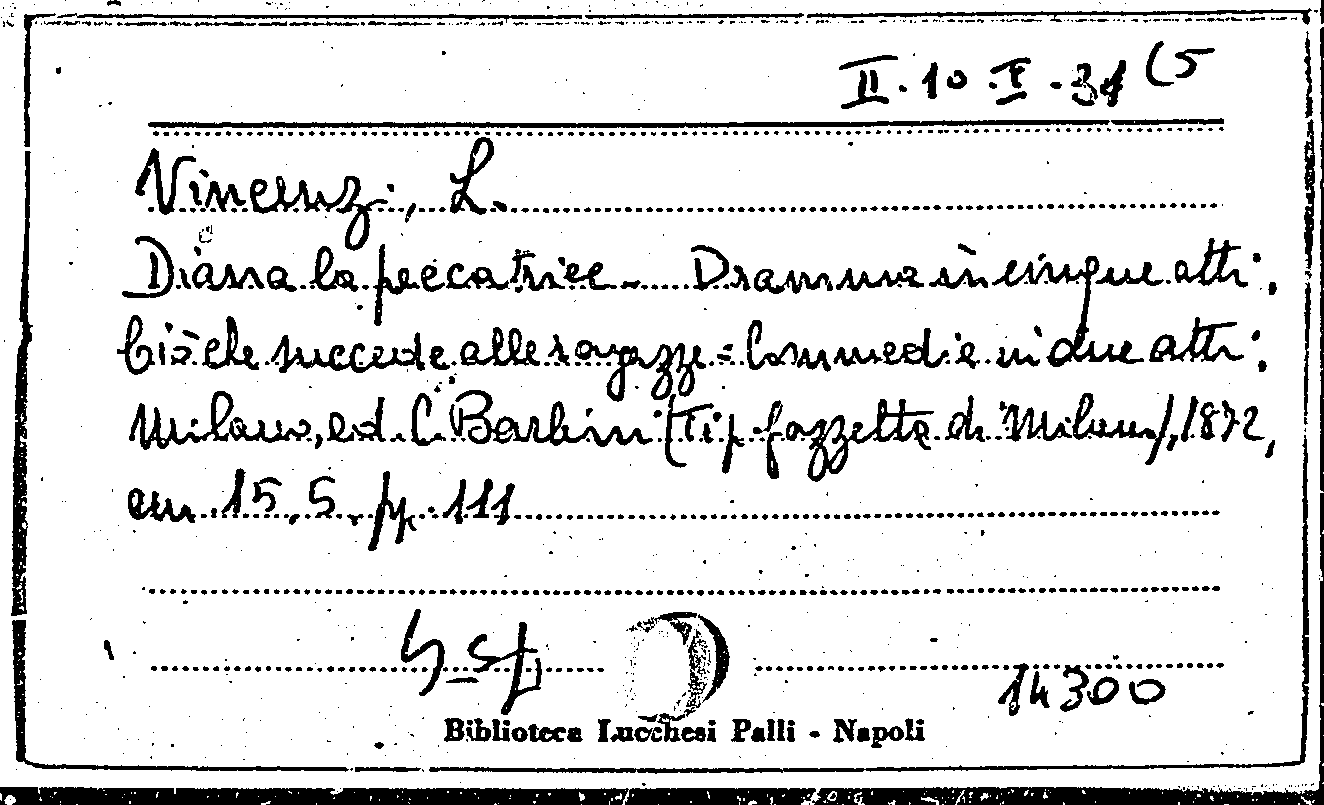 II.10.V.31 (5
Vincenzi, L.
Diana la peccatrice - Dramma in cinque atti;
Ciò che succede alle ragazze = Commedia in due atti;
Milano, ed. C. Barbini (Tip. Gazzetta di Milano), 1872,
cm. 15,5. pp. 111
14300
Biblioteca Lucchesi Palli - Napoli